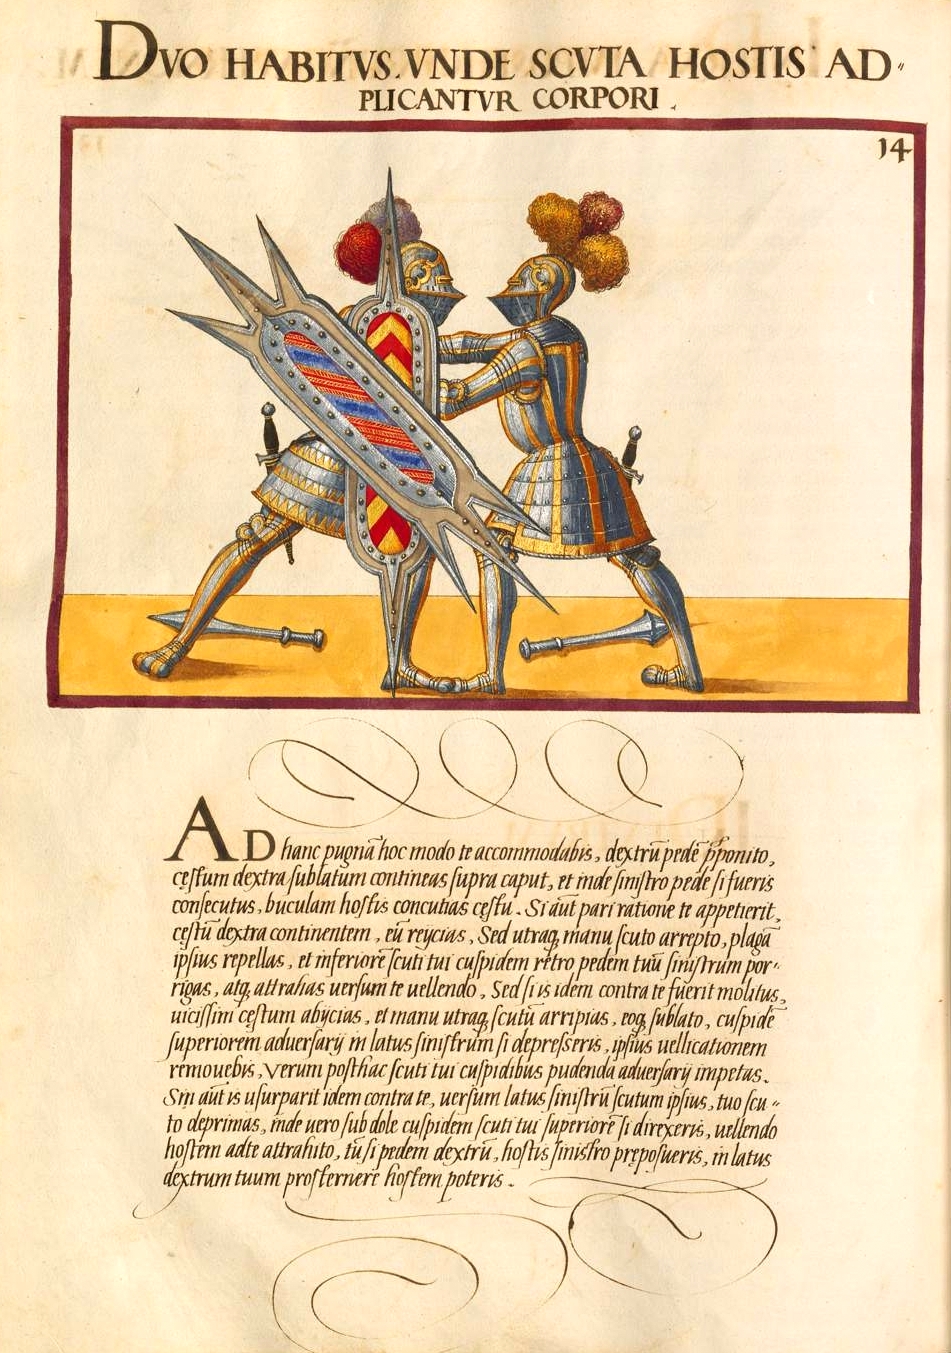 DVO HABITVS. VNDE SCVTA HOSTIS AD"
PLICANTVR CORPORI.
14
AD hanc pugnã hoc modo te accommodabis, dextrũ pedẽ p̃ponito,
cęstum dextra sublatum contineas supra caput, et inde sinistro pede si fueris
consecutus, buculam hostis concutias cęstu. Si aũt pari ratione te appetierit,
cęstũ dextra continentem, eũ reijcias, Sed utraq; manu scuto arrepto, plagã
ipsius repellas, et inferiorẽ scuti tui cuspidem retro pedem tuũ sinistrum por"
rigas, atq; attrahas uersum te uellendo, Sed si is idem contra te fuerit molitus,
uicissim cęstum abijcias, et manu utraq; scutũ arripias, eoq; sublato, cuspidẽ
superiorem aduersarij in latus sinistrum si depresseris, ipsius uellicationem
remouebis, Verum posthac scuti tui cuspidibus pudenda aduersarij impetas.
Sin aũt is usurparit idem contra te, uersum latus sinistrũ scutum ipsius, tuo scu"
to deprimas, inde uero sub dole cuspidem scuti tui superiorẽ si direxeris, uellendo
hostem ad te attrahito, tũ si pedem dextrũ, hostis sinistro pręposueris, in latus
dextrum tuum prosternere hostem poteris.